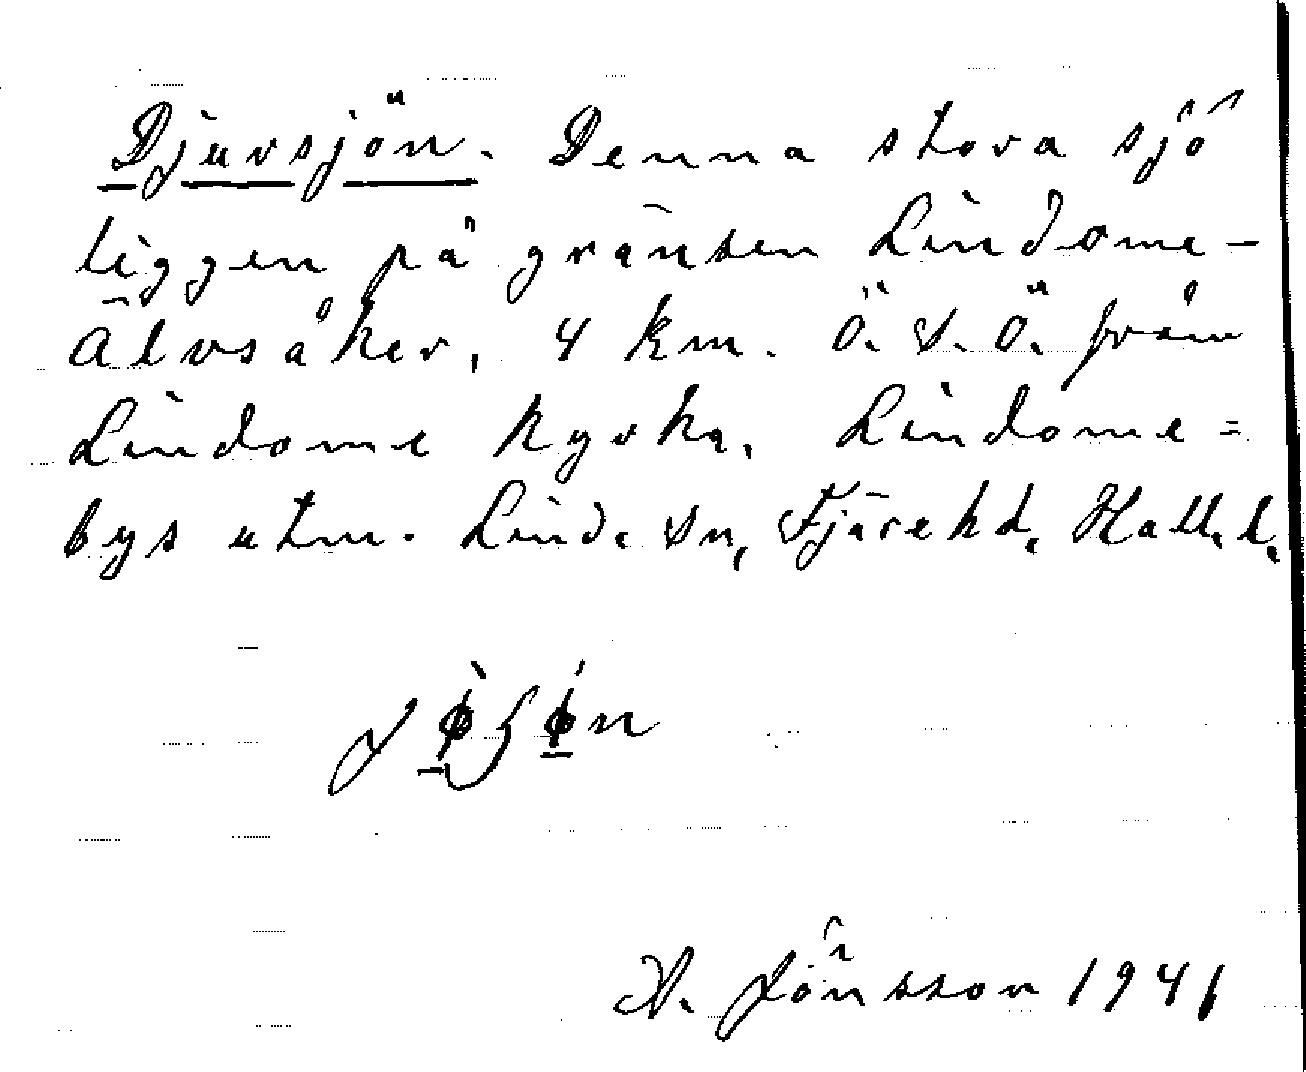 Djursjön. Denna stora sjö
ligger på gränsen Lindome-
Älvsåker, 4 km. Ö.S.Ö. från
Lindome kyrka. Lindome=
bys utm. Lind. Sn, Fjärehd, Hall.l.
A. Jönsson 1941